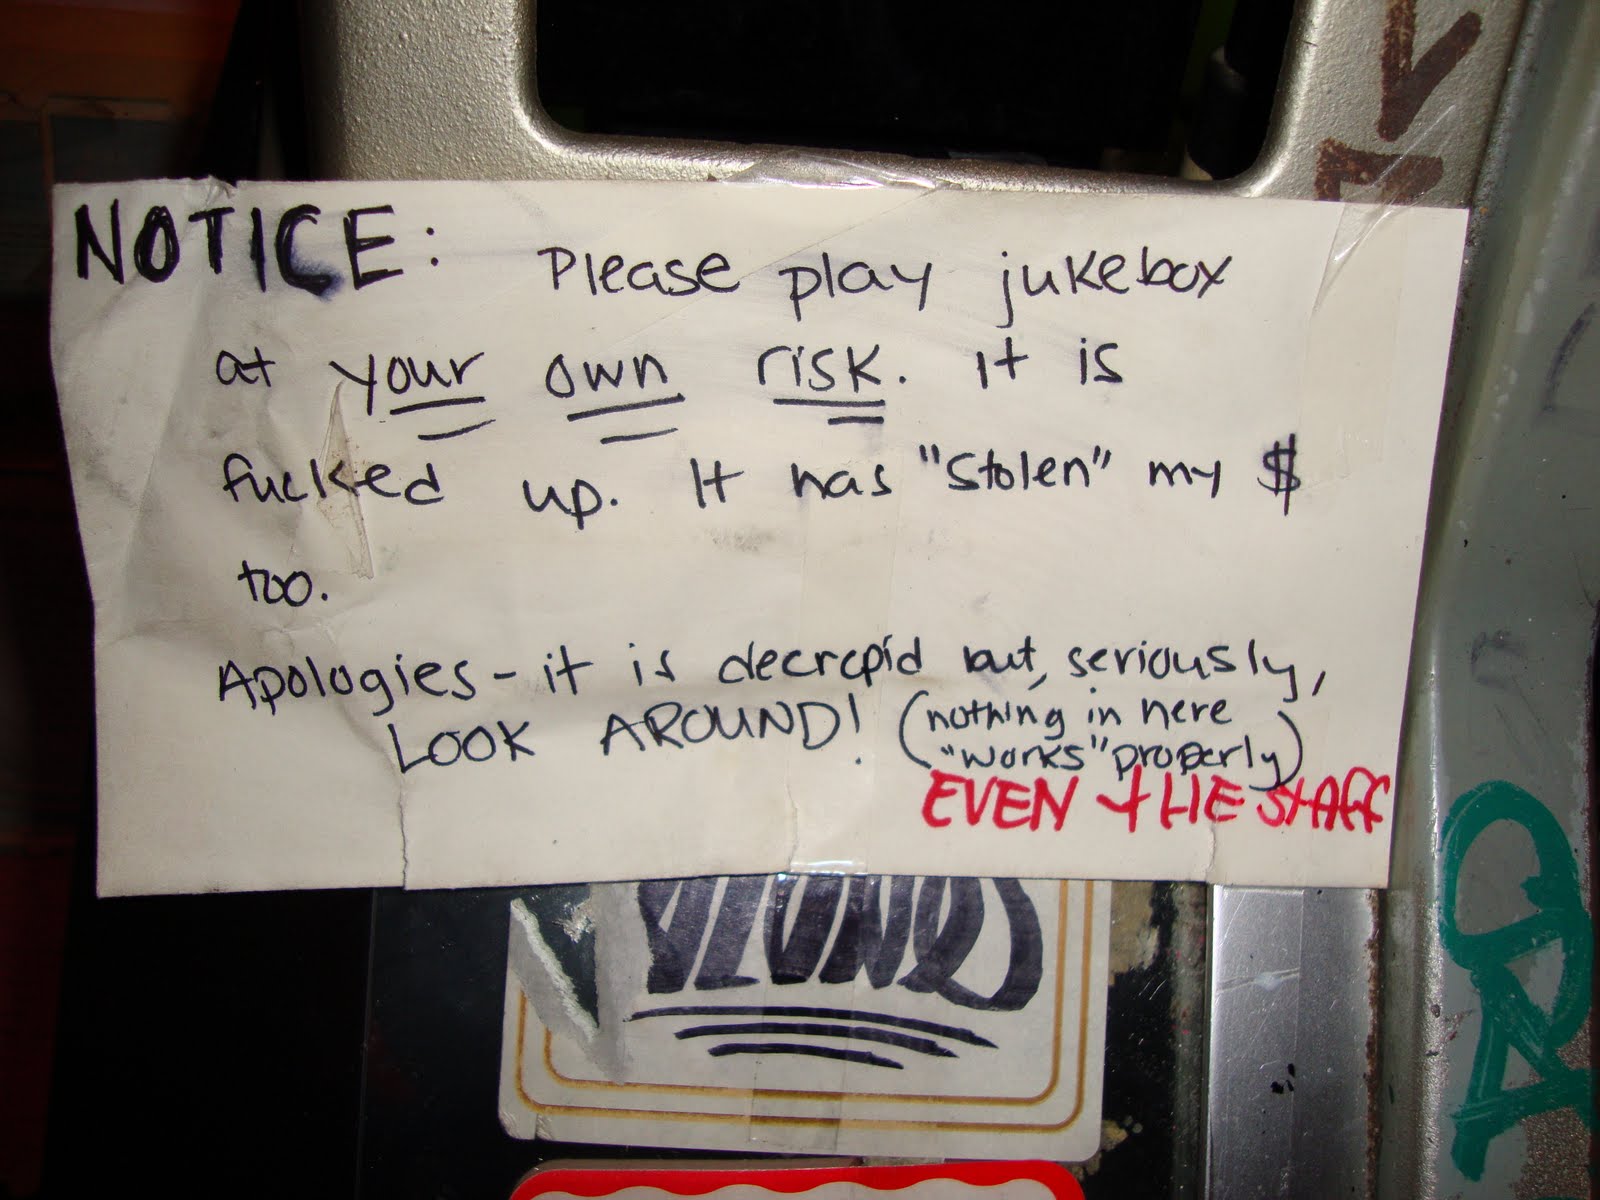 NOTICE: Please play jukebox
at your own risk. It is
fucked up. It has "stolen" my $
too.
Apologies - it is decrepid but, seriously,
LOOK AROUND! (nothing in here
"works" properly)
EVEN THE STAFF